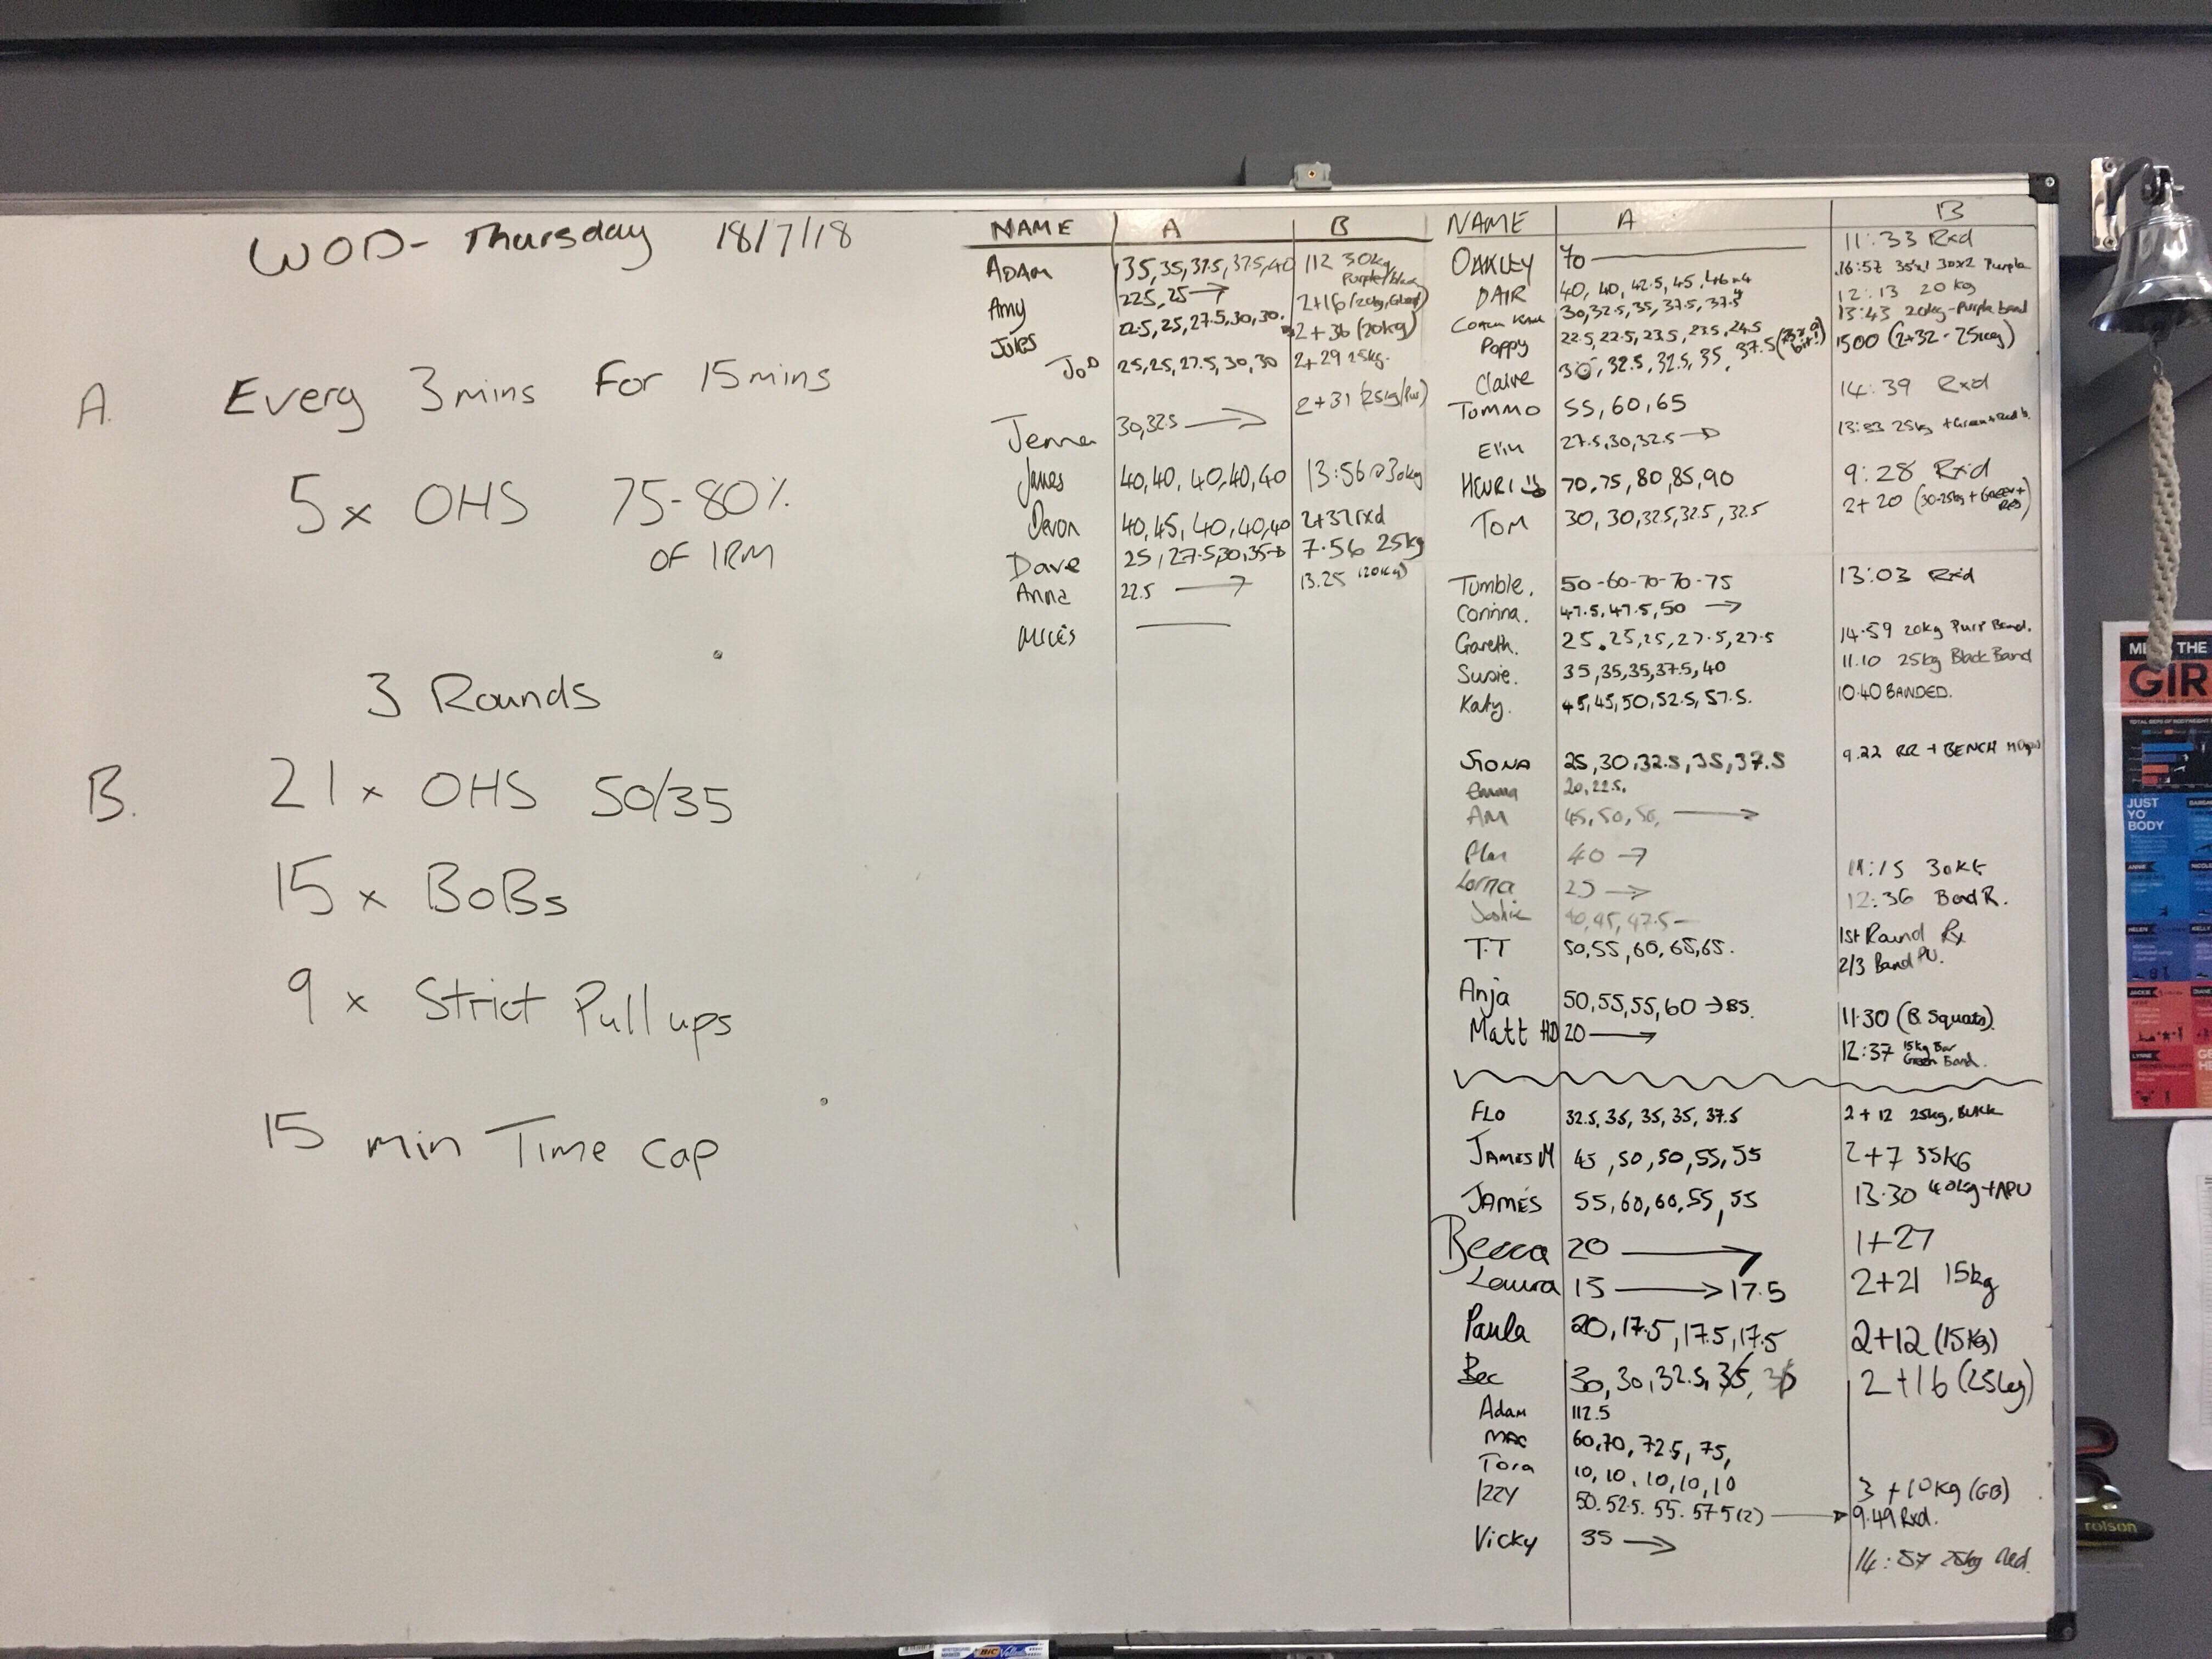 WOD- Thursday 18/7/18
A. Every 3mins For 15mins
5x OHS 75-80%
OF 1RM
3 Rounds
B. 21x OHS 50/35
15x BoBs
9x Strict Pull ups
15 min Time cap
NAME A B
ADAM 35,35,37.5,37.5,40 112 30kg
Purple/
Amy 22.5, 25 → 2+16 (20kg,
JULES 22.5, 25, 27.5, 30, 30. 2+36 (20kg)
JoD 25,25,27.5,30,30 2+29 25kg.
Jenna 30,32.5 → 2+31 (25kg/Pur)
James 40,40, 40,40,40 13:56 @30kg
Devon 40,45, 40,40,40 2+37 rxd
Dave 25, 27.5,30,35→ 7.56 25kg
Anna 22.5 → 13.25 (20kg)
NAME A B
OAKLEY 70 11:33 Rxd
DAIR 40, 40, 42.5, 45, 16:57 35x1 30x2 Purple
30,32.5,35,37.5,37.5 12:13 20kg
Poppy 22.5,22.5,23.5,23.5,24.5 13:43 20kg-Purple band
Claire 30, 32.5, 32.5, 35, 37.5 1500 (2+32 - 25kg)
TOMMO 55, 60, 65 14:39 Rxd
Elin 27.5,30,32.5→ 13:53 25kg +Green+Red b.
HENRI 70,75,80,85,90 9:28 Rxd
TOM 30, 30,32.5,32.5,32.5 2+20 (30-25kg + Green +
RED)
Tumble. 50-60-70-70-75 13:03 Rxd
Corinna. 47.5,47.5,50 →
Gareth. 25.25,25,27.5,27.5 14.59 20kg Purp Band.
Susie. 35,35,35,37.5,40 11.10 25kg Black Band
Katy. 45,45,50,52.5,57.5. 10.40 BANDED.
FIONA 25,30,32.5,35,37.5 9.22 RR + BENCH
Emma 20,22.5.
AM 45,50,50, →
40 →
Lorna 25 → 11:15 30KG
40,45,47.5- 12:36 Band R.
T.T 50,55,60,65,65. 1st Round Rx
2/3 Band PU.
Anja 50,55,55,60 → BS. 11.30 (B. Squats).
Matt HD 20 → 12:37 15kg Bar
Green Band.
FLO 32.5, 35, 35, 35, 37.5 2+12 25kg, BLACK
JAMES M 45,50,50,55,55 2+7 35KG
JAMES 55,60,60,55,55 13.30 40kg+APU
Becca 20 → 1+27
Laura 15 → 17.5 2+21 15kg
Paula 20,17.5,17.5,17.5 2+12 (15kg)
Bec 30,30,32.5,35, 35 2+16 (25kg)
Adam 112.5
MAC 60,70,72.5,75,
Tora 10,10,10,10,10 3 +10kg (GB)
IZZY 50. 52.5. 55. 57.5(2) → 9.49 Rxd.
Vicky 35 → 14:57 25kg Red.
MEET THE
GIR
JUST
YO'
BODY
ANNIE
HELEN
KELLY
JACKIE
DIANE
LYNNE
rolson
BIC Velleda